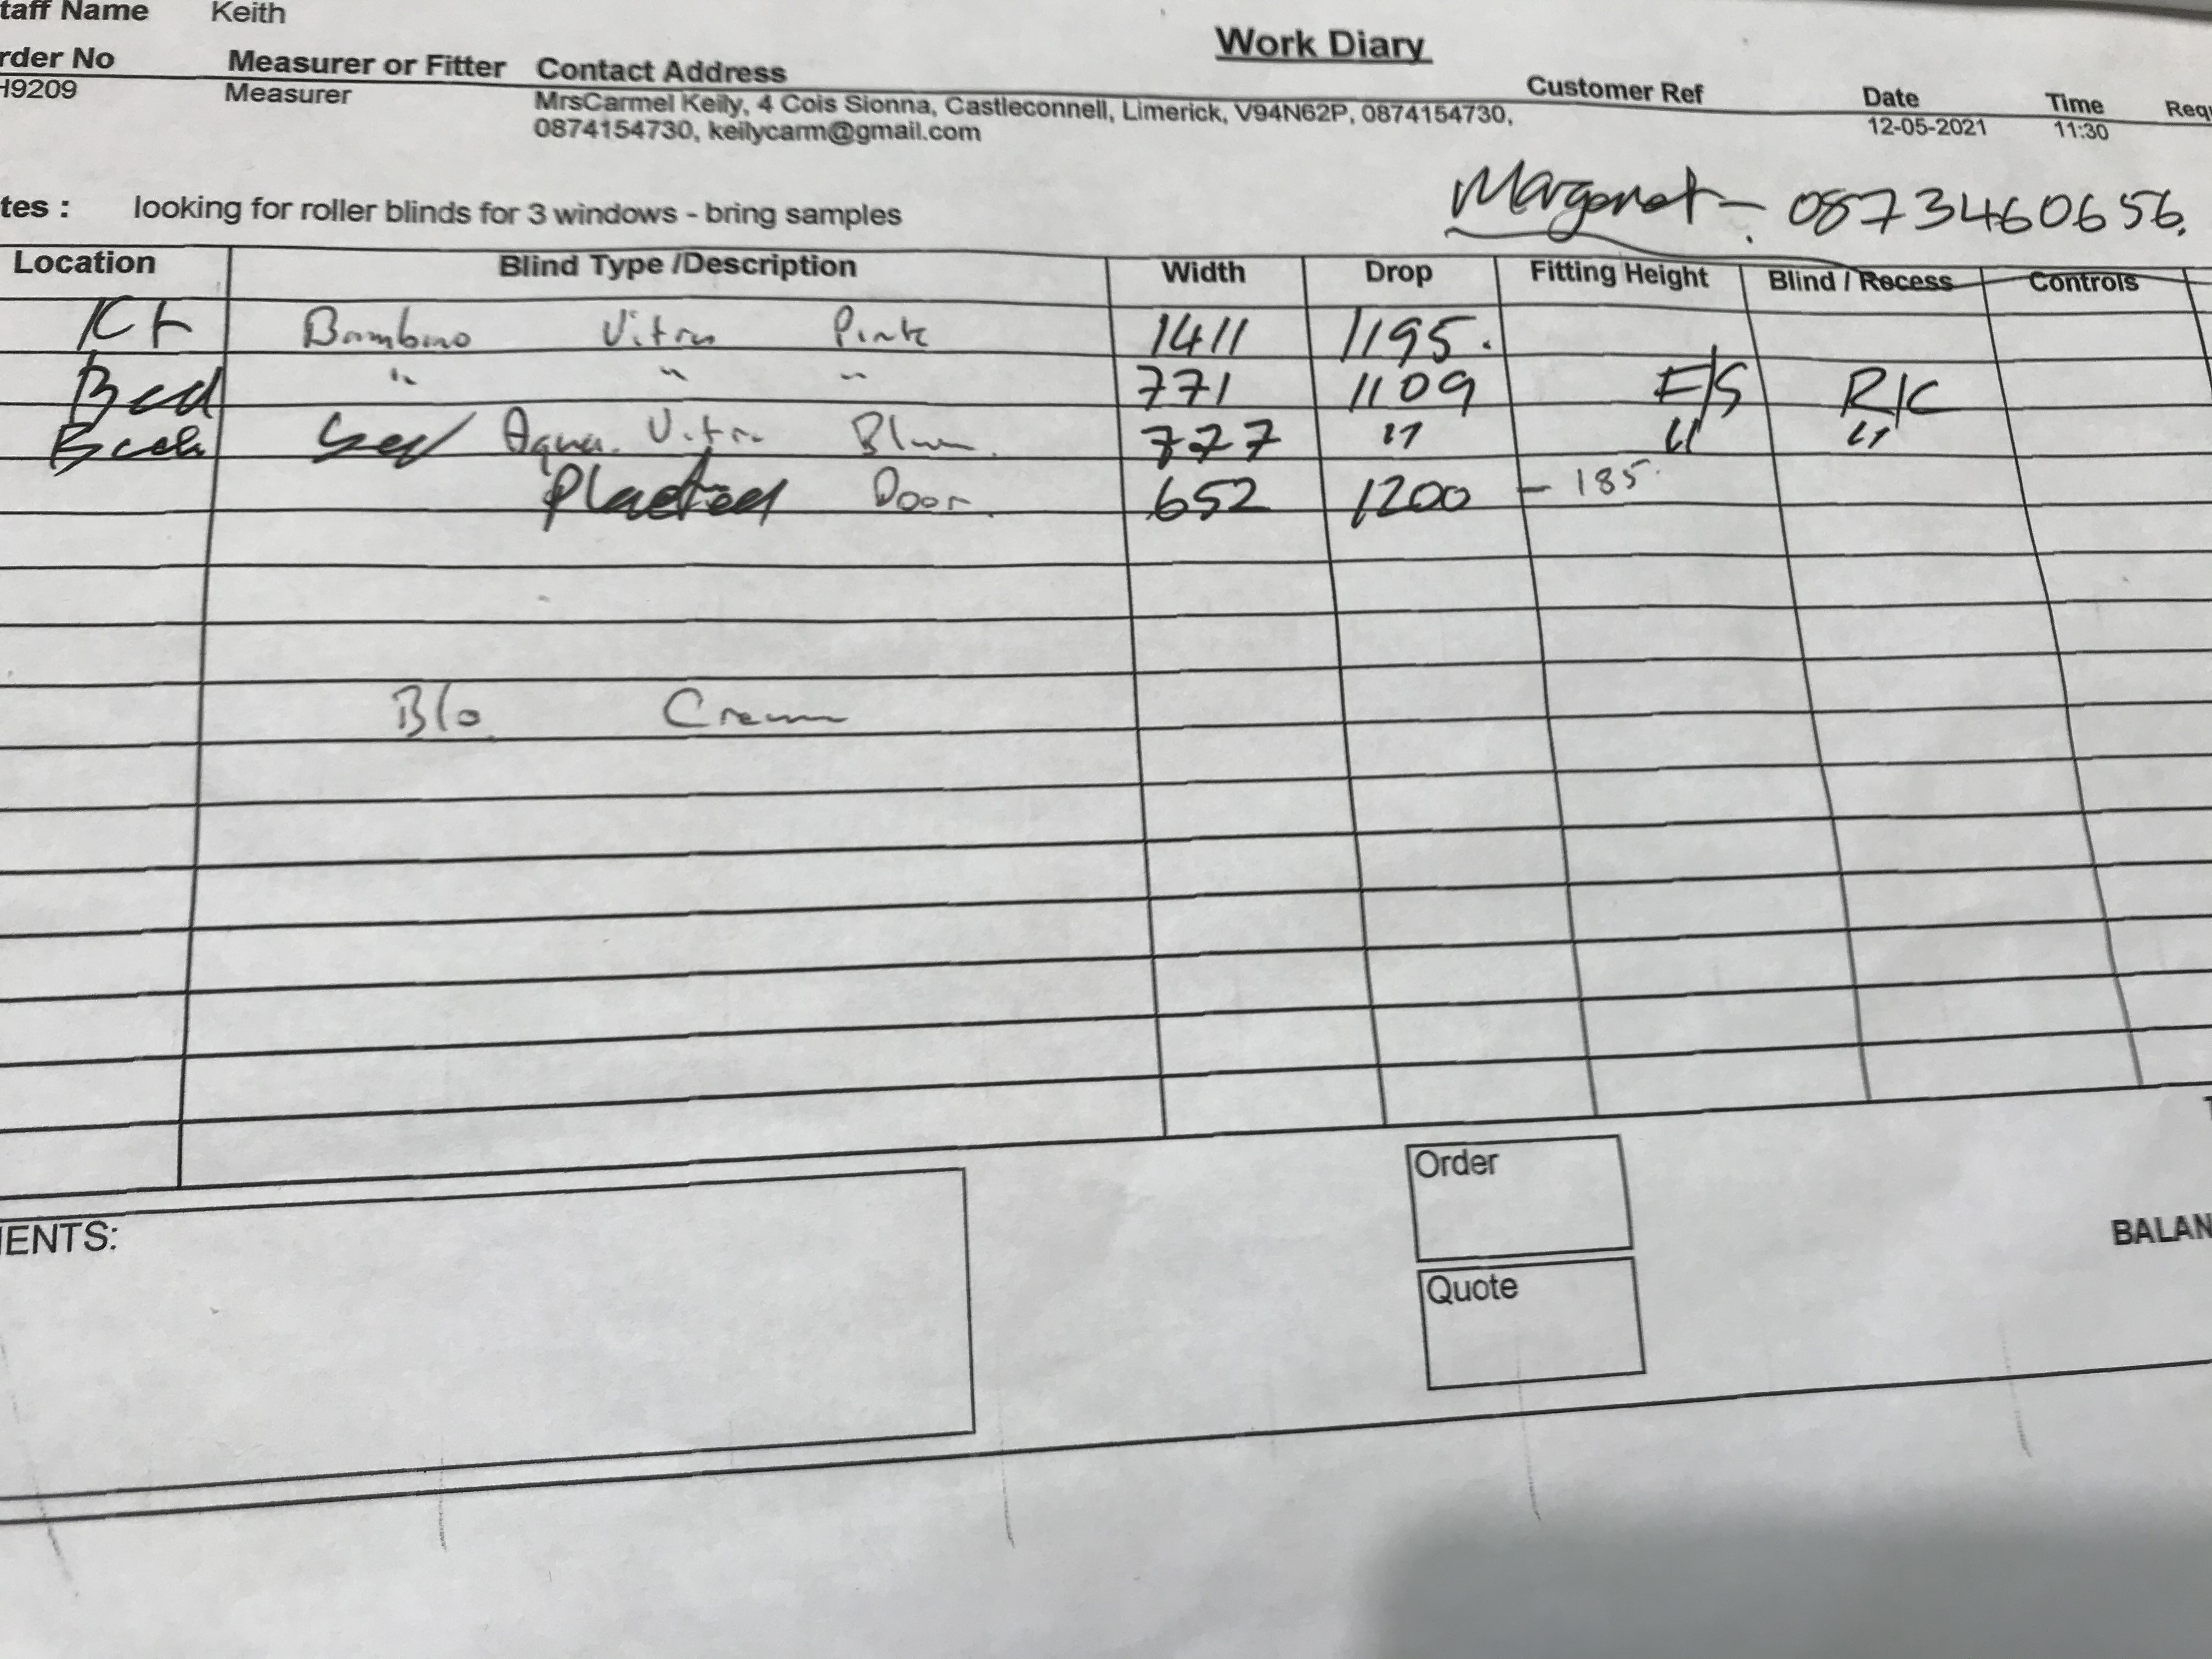 taff Name Keith
Work Diary
rder No Measurer or Fitter Contact Address Customer Ref Date Time Requ
H9209 Measurer MrsCarmel Keily, 4 Cois Sionna, Castleconnell, Limerick, V94N62P, 0874154730, 12-05-2021 11:30
0874154730, keilycarm@gmail.com
Margaret - 0873460656.
tes : looking for roller blinds for 3 windows - bring samples
Location Blind Type /Description Width Drop Fitting Height Blind / Recess Controls
Kt Bambino Vitra Pink 1411 1195.
Bed " " " 771 1109 E/S R/C
Bed Aqua Vitra Blue 777 " " "
Door 652 1200 - 185.
B/o Cream
Order
IENTS:
BALAN
Quote